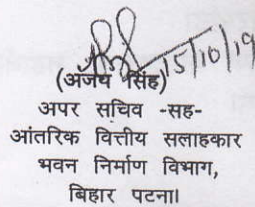 15/10/19
(अजय सिंह)
अपर सचिव -सह-
आंतरिक वित्तीय सलाहकार
भवन निर्माण विभाग,
बिहार पटना।